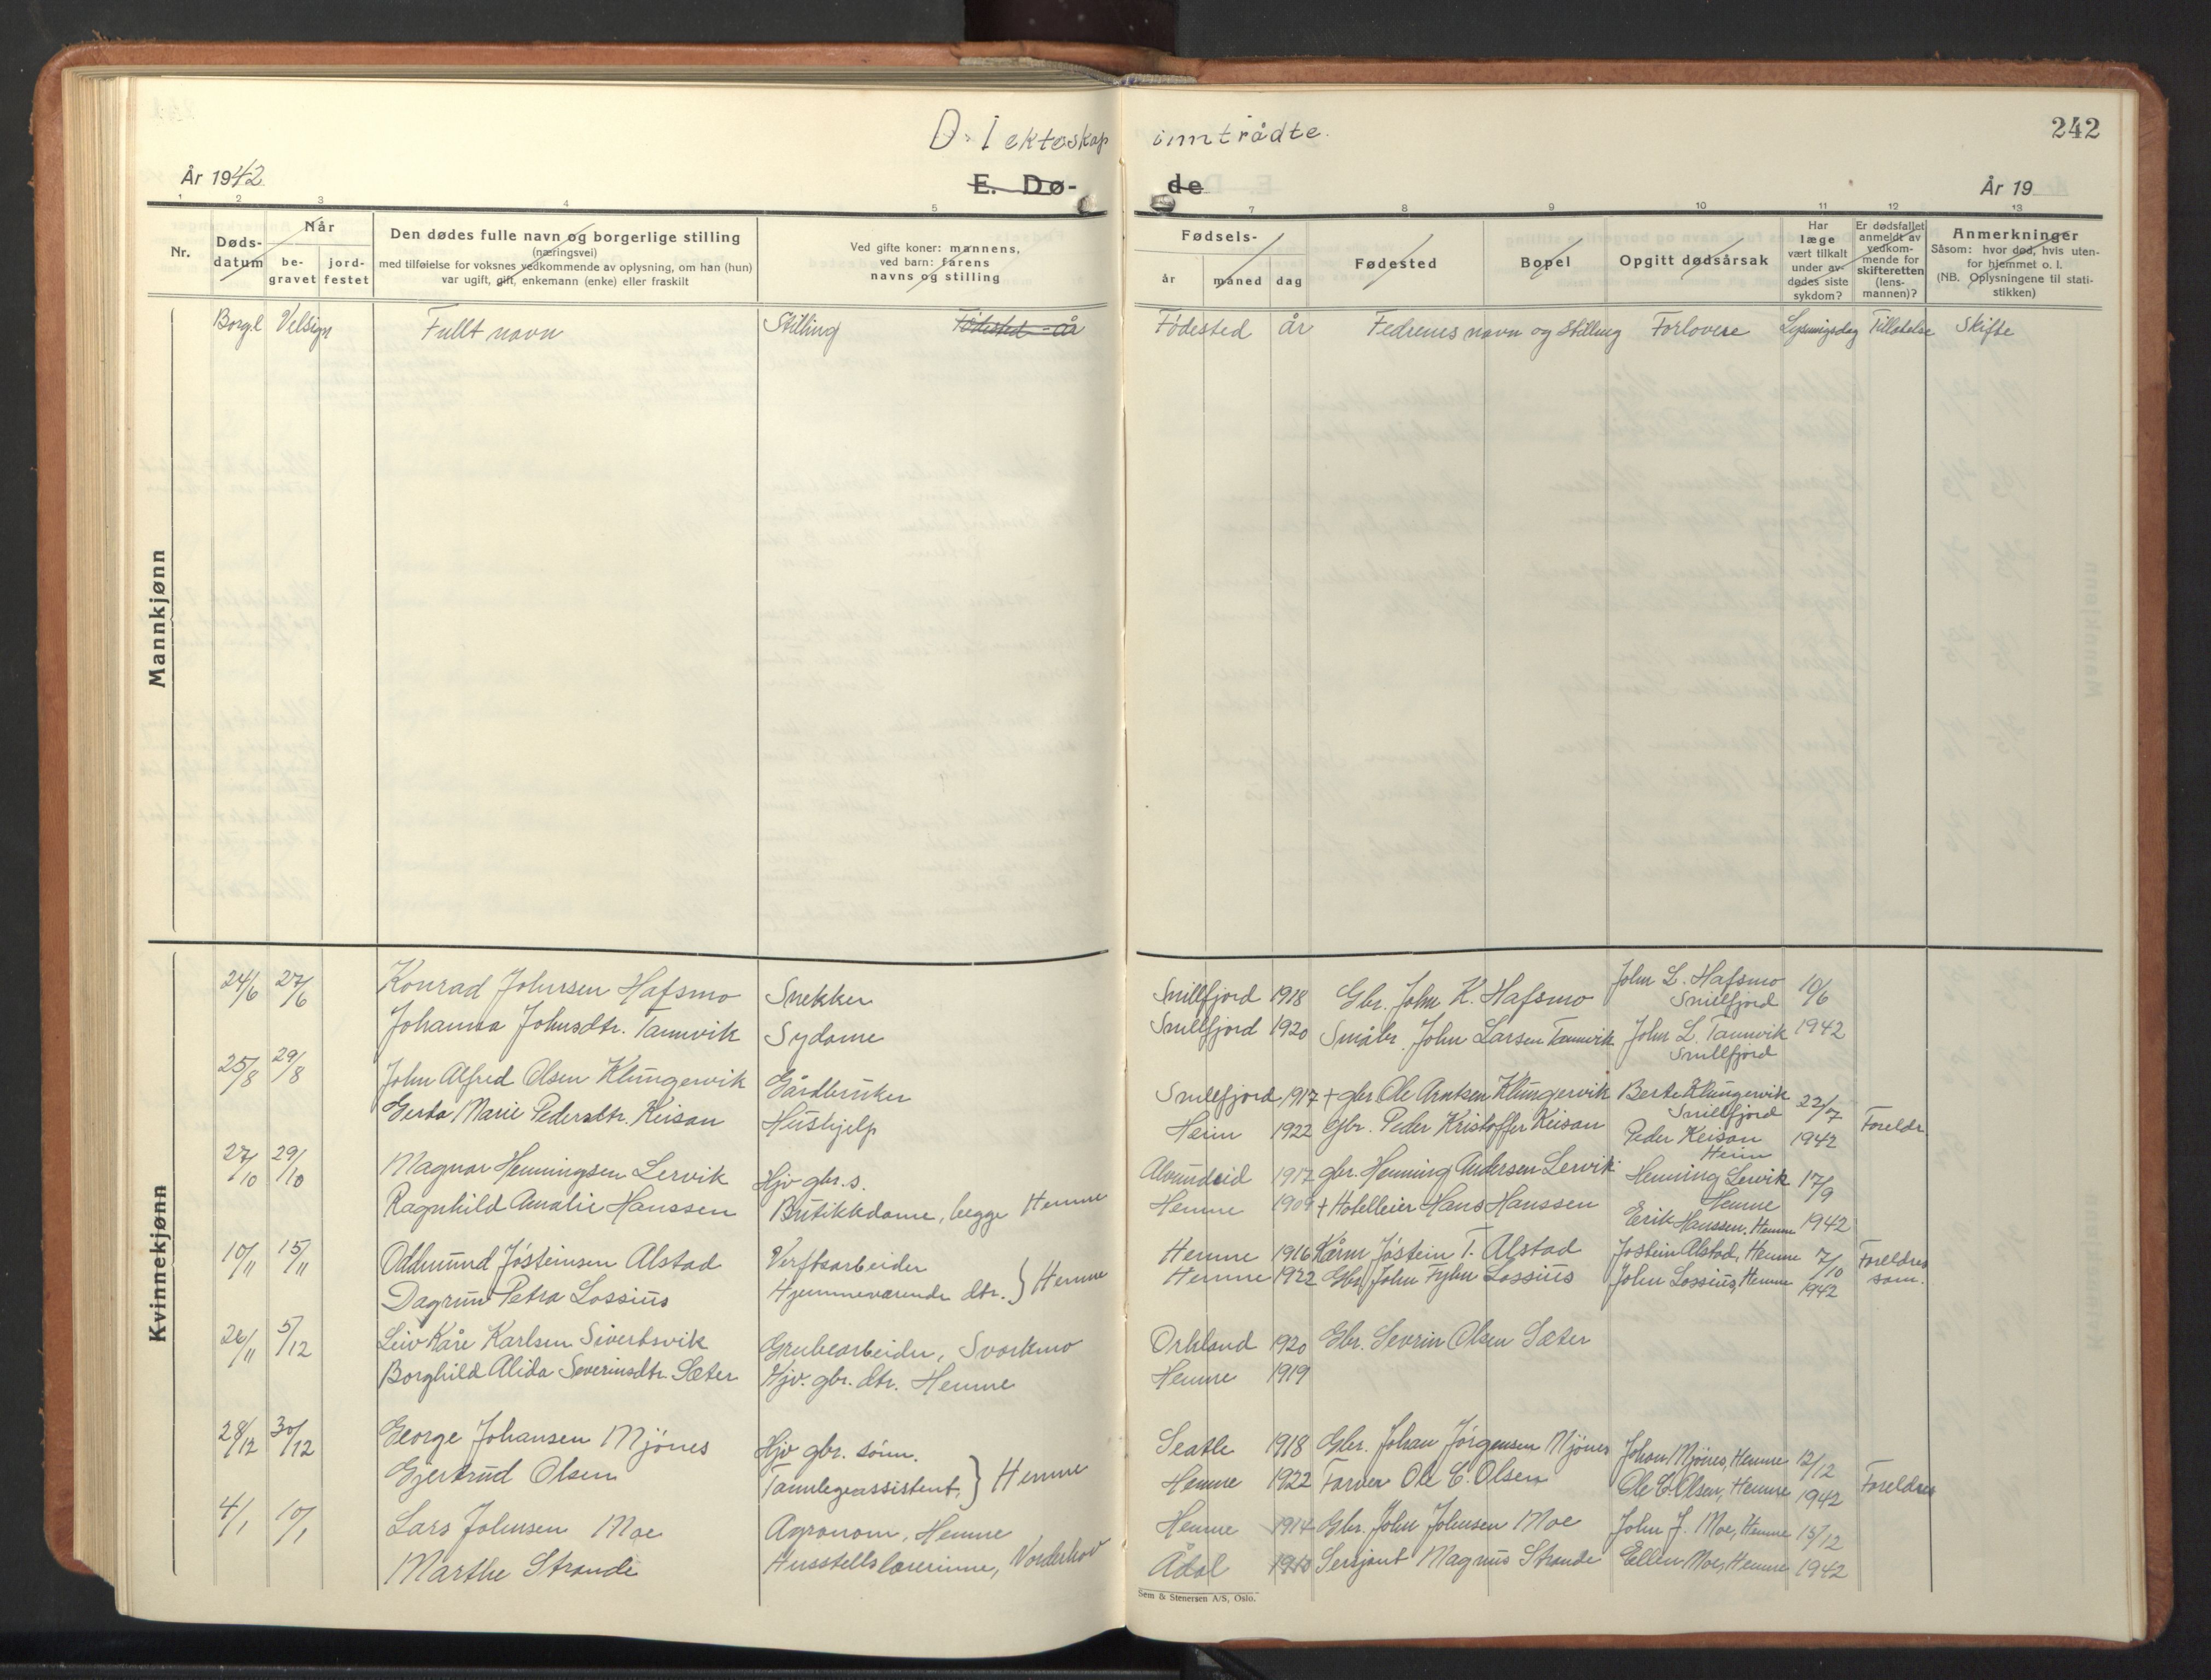 D. I ekteskap inntrådte.
242
År 1942
E. Dø- de
År 19
1 2 3 4 5 7 8 9 10 11 12 13
Nr.
Døds-
datum
Når
be-
gravet
jord-
festet
Den dødes fulle navn og borgerlige stilling
(næringsvei)
med tilføielse for voksnes vedkommende av oplysning, om han (hun)
var ugift, gift, enkemann (enke) eller fraskilt
Ved gifte koner: mannens,
ved barn: farens
navns og stilling
Fødsels-
år måned dag
Fødested
Bopel
Opgitt dødsårsak
Har
læge
vært tilkalt
under av-
dødes siste
sykdom?
Er dødsfallet
anmeldt av
vedkom-
mende for
skifteretten
(lens-
mannen)?
Anmerkninger
Såsom: hvor død, hvis uten-
for hjemmet o. l.
(NB. Oplysningene til stati-
stikken)
Borgl Velsign Fullt navn Stilling Fødested - år Fødested år Fedrenes navn og stilling Forlovere Lysningsdag Tillatelse Skifte
Mannkjønn
Kvinnekjønn
24/6 27/6 Konrad Johnsen Hafsmo Snekker Snillfjord 1918 Gbr. John K. Hafsmo John L. Hafsmo Snillfjord 10/6
Johanna Johnsdtr. Tannvik Sydame Snillfjord 1920 Småbr. John Larsen Tannvik John L. Tannvik Snillfjord 1942
25/8 29/8 John Alfred Olsen Klungervik Gårdbruker Snillfjord 1917 + gbr. Ole Arntsen Klungervik Berte Klungervik Snillfjord 22/7
Gerda Marie Pedersdtr. Keisan Hushjelp Heim 1922 Gbr. Peder Kristoffer Keisan Peder Keisan Heim 1942 Foreldr
27/10 29/10 Magnar Henningsen Lervik Hjv gbr.s. Alvundeid 1917 gbr. Henning Andersen Lervik Henning Lervik Hemne 17/9
Ragnhild Amalie Hanssen Butikkdame, begge Hemne Hemne 1909 + Hotelleier Hans Hanssen Erik Hanssen, Hemne 1942
10/11 15/11 Oddmund Jósteinsen Alstad Verftsarbeider Hemne 1916 Kårm Jóstein T. Alstad Jostein Alstad, Hemne 7/10 Foreldres
Dagrun Petra Lossius Hjemmeværende dtr. } Hemne Hemne 1922 Gbr John Fyhn Lossius John Lossius, Hemne 1942 sam.
26/11 5/12 Leiv Kåre Karlsen Sivertsvik Grubearbeider, Svorkmo Orkland 1920 Gbr. Sevrin Olsen Sæter
Borghild Alida Severinsdtr. Sæter Hjv. gbr. dtr. Hemne Hemne 1919
28/12 30/12 George Johansen Mjónes Hjv gbr. sónn. Seatle 1918 Gbr. Johan Jórgensen Mjónes Johan Mjónes, Hemne 12/12
Gjertrud Olsen Tannlegeassistent, } Hemne Hemne 1922 Farver Ole C. Olsen Ole C. Olsen, Hemne 1942 Foreldres
4/1 10/1 Lars Johnsen Moe Agronom, Hemne Hemne 1914 Gbr. John Johnsen Moe John J. Moe, Hemne 15/12
Marthe Strande Husstellslærerinne, Norderhov Ådal Sersjant Magnus Strande Ellen Moe, Hemne 1942
Sem & Stenersen A/S, Oslo.